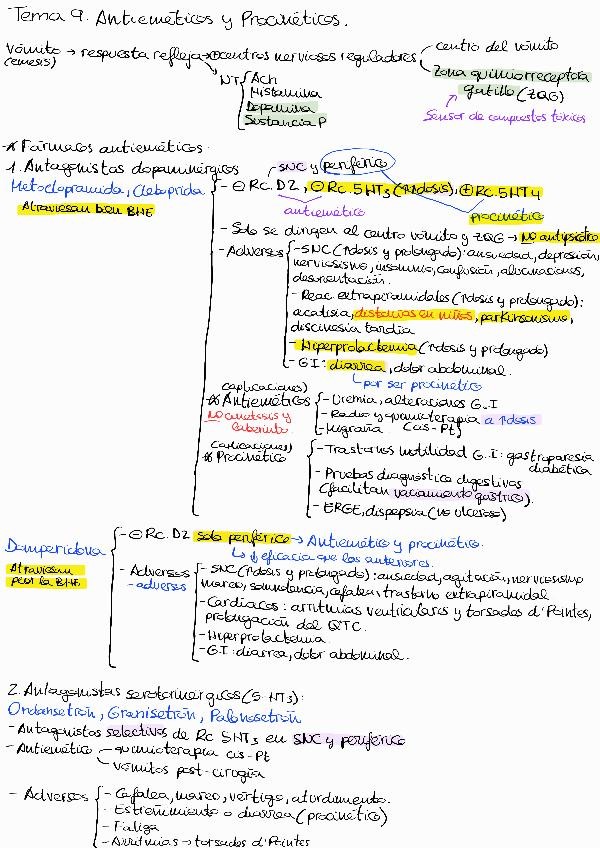 Tema 9. Antieméticos y Procinéticos.
vómito → respuesta refleja → ⊕ centros nerviosos reguladores
(emesis)
centro del vómito
Zona quimiorreceptora
gatillo (ZQG)
Sensor de compuestos tóxicos
NT
Ach
Histamina
Dopamina
Sustancia P
* Fármacos antieméticos.
1. Antagonistas dopaminérgicos
SNC y periférico
Metoclopramida, Cleboprida
Atraviesan bien BHE
- ⊖ Rc. D2, ⊖ Rc. 5HT3 (↑dosis), ⊕ Rc. 5HT4
antiemético
procinético
- Solo se dirigen al centro vómito y ZQG → No antipsicótico
- Adversos
- SNC (↑dosis y prolongado): ansiedad, depresión,
nerviosismo, insomnio, confusión, alucinaciones,
desorientación.
- Reac. extrapiramidales (↑dosis y prolongado):
acatisia, distonías en niños, parkinsonismo,
discinesia tardía
- Hiperprolactemia (↑dosis y prolongado)
- G.I: diarrea, dolor abdominal.
↳ por ser procinético
(aplicaciones)
* Antieméticos
NO cinetosis y
laberinto.
- Uremia, alteraciones G.I
- Radio y quimioterapia a ↑dosis
- Migraña (cis-Pt)
(aplicaciones)
* Procinético
- Trastornos motilidad G.I: gastroparesia
diabética
- Pruebas diagnóstico digestivas
(facilitan vaciamiento gástrico).
- ERGE, dispepsia (no ulcerosa)
Domperidona
Atraviesan
peor la BHE
- ⊖ Rc. D2 solo periférico → Antiemético y procinético.
↳ ↓ eficacia que los anteriores.
- Adversos
- adversos
- SNC (↑dosis y prolongado): ansiedad, agitación, nerviosismo
mareo, somnolencia, cefalea, trastorno extrapiramidal
- Cardíacos: arritmias ventriculares y torsades d'Pointes,
prolongación del QTC.
- Hiperprolactemia.
- G.I: diarrea, dolor abdominal.
2. Antagonistas serotoninérgicos (5-HT3):
Ondansetrón, Granisetrón, Palonosetrón
- Antagonistas selectivos de Rc 5HT3 en SNC y periférico
- Antiemético
- quimioterapia cis-Pt
vómitos post-cirugía
- Adversos
- Cefalea, mareo, vértigo, aturdimiento.
- Estreñimiento o diarrea (procinético)
- Fatiga
- Arritmias → torsades d'Pointes